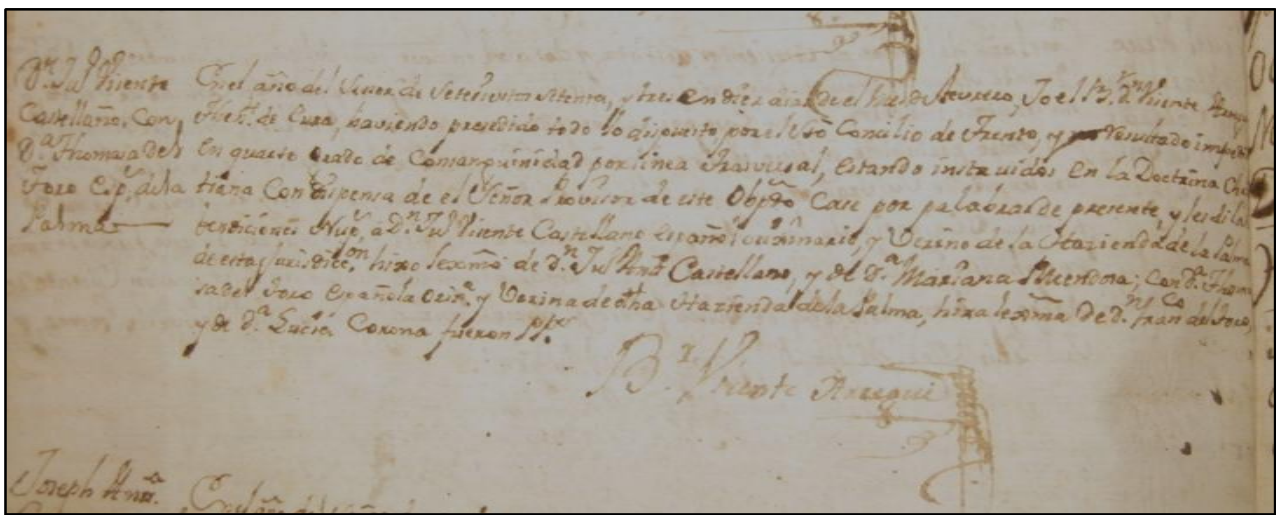 Dn. Jul Vicente
Castellano. Con
Da. Thomasa del
Toro Espa. de la
Palma
En el año del Señor de Setecientos Setenta, y tres en diez dias de el Mes de Fevrero, Yo el Br. Dn. Vicente
Thete. de Cura, haviendo presedido todo lo dispuesto por el Sto. Concilio de Trento, y resultado
en quarto grado de Consanguinidad por linea trasversal, estando instruidos en la Doctrina
tiana Con dispensa de el Señor Provisor de este Obpdo. Case por palabras de presente, y les di las
bendiciones Nup. a Dn. Jul Vicente Castellano español originario, y Vezino de la Hazienda de la Palma
de esta jurisdiccon. hixo lexmo. de Dn. Jul Anto. Castellano, y de Da. Mariana Mendosa; con Da. Thoma
sa del Toro Española orina. y Vezina de dha Hazienda de la Palma, hixa lexma. De Dn. Franco. del Toro,
y de Da. Lucia Corona fueron
Br. Vicente Arregui
Joseph Anto.
En el año del Señor de